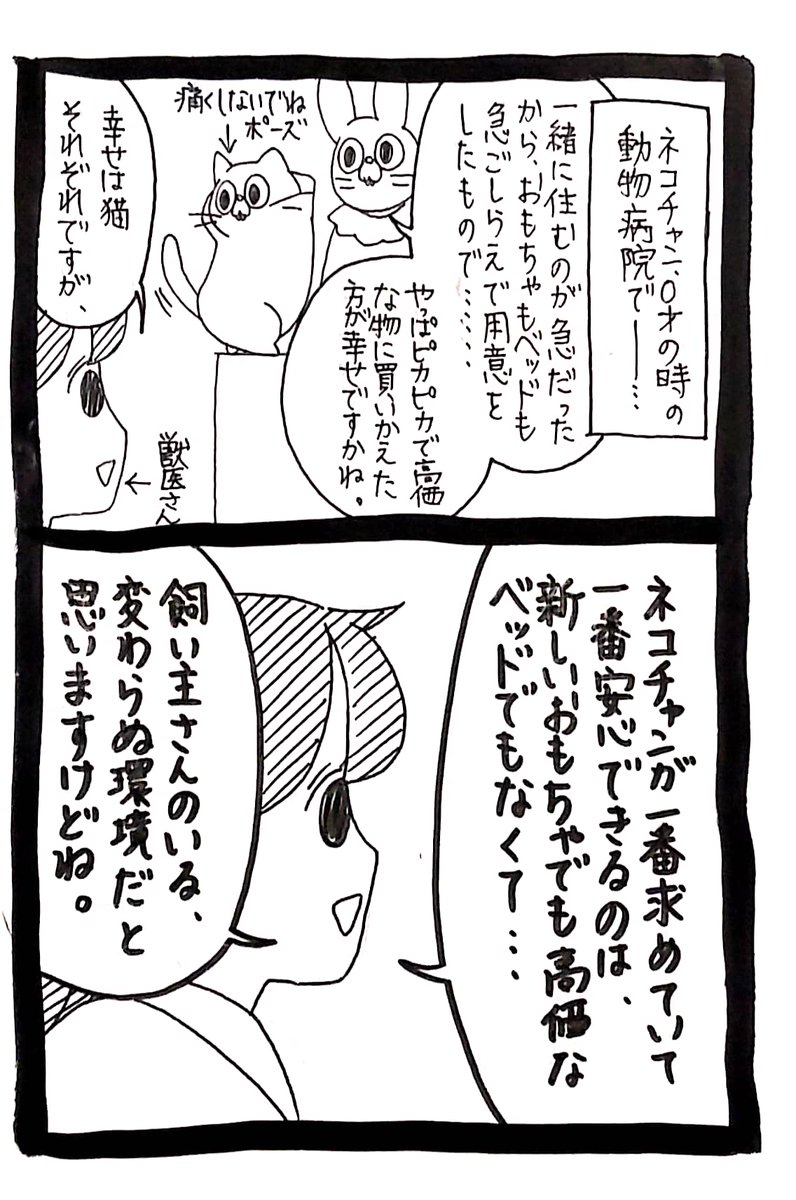 ネコチャン、0才の時の
動物病院でー…
一緒に住むのが急だった
から、おもちゃもベッドも
急ごしらえで用意を
したもので……
やっぱピカピカで高価
な物に買いかえた
方が幸せですかね。
痛くしないでね
ポーズ
幸せは猫
それぞれですが、
獣医さん
ネコチャンが一番求めていて
一番安心できるのは、
新しいおもちゃでも高価な
ベッドでもなくて…
飼い主さんのいる、
変わらぬ環境だと
思いますけどね。